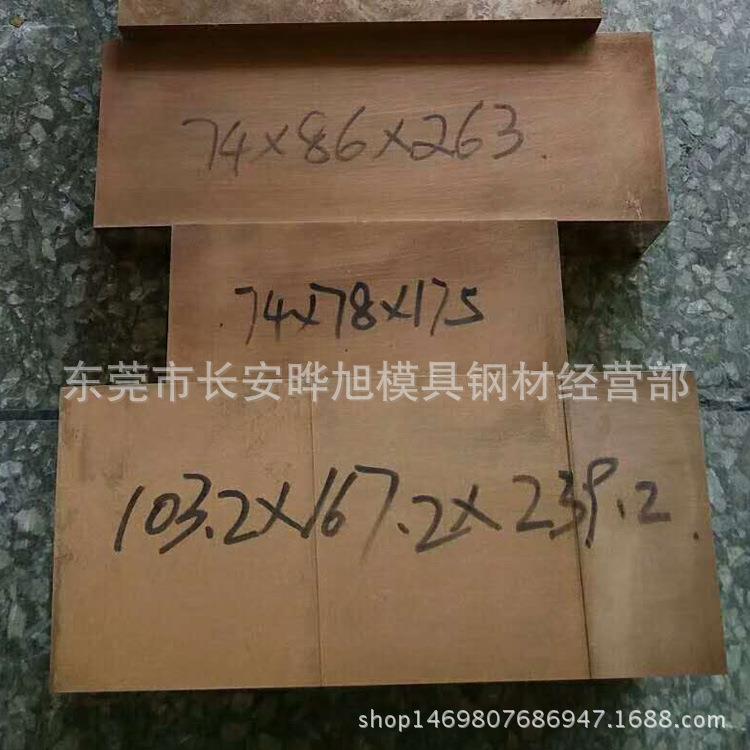 74x86x263.
74x78x175
东莞市长安晔旭模具钢材经营部
103.2x167.2x239.2.
shop1469807686947.1688.com